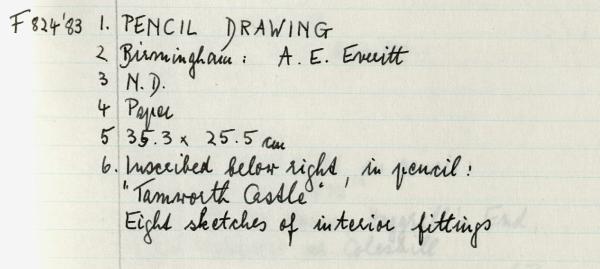 F 824'83 1. PENCIL DRAWING
2 Birmingham: A. E. Everitt
3 N.D.
4 Paper
5 35.3 x 25.5 cm
6. Inscribed below right, in pencil:
"Tamworth Castle"
Eight sketches of interior fittings